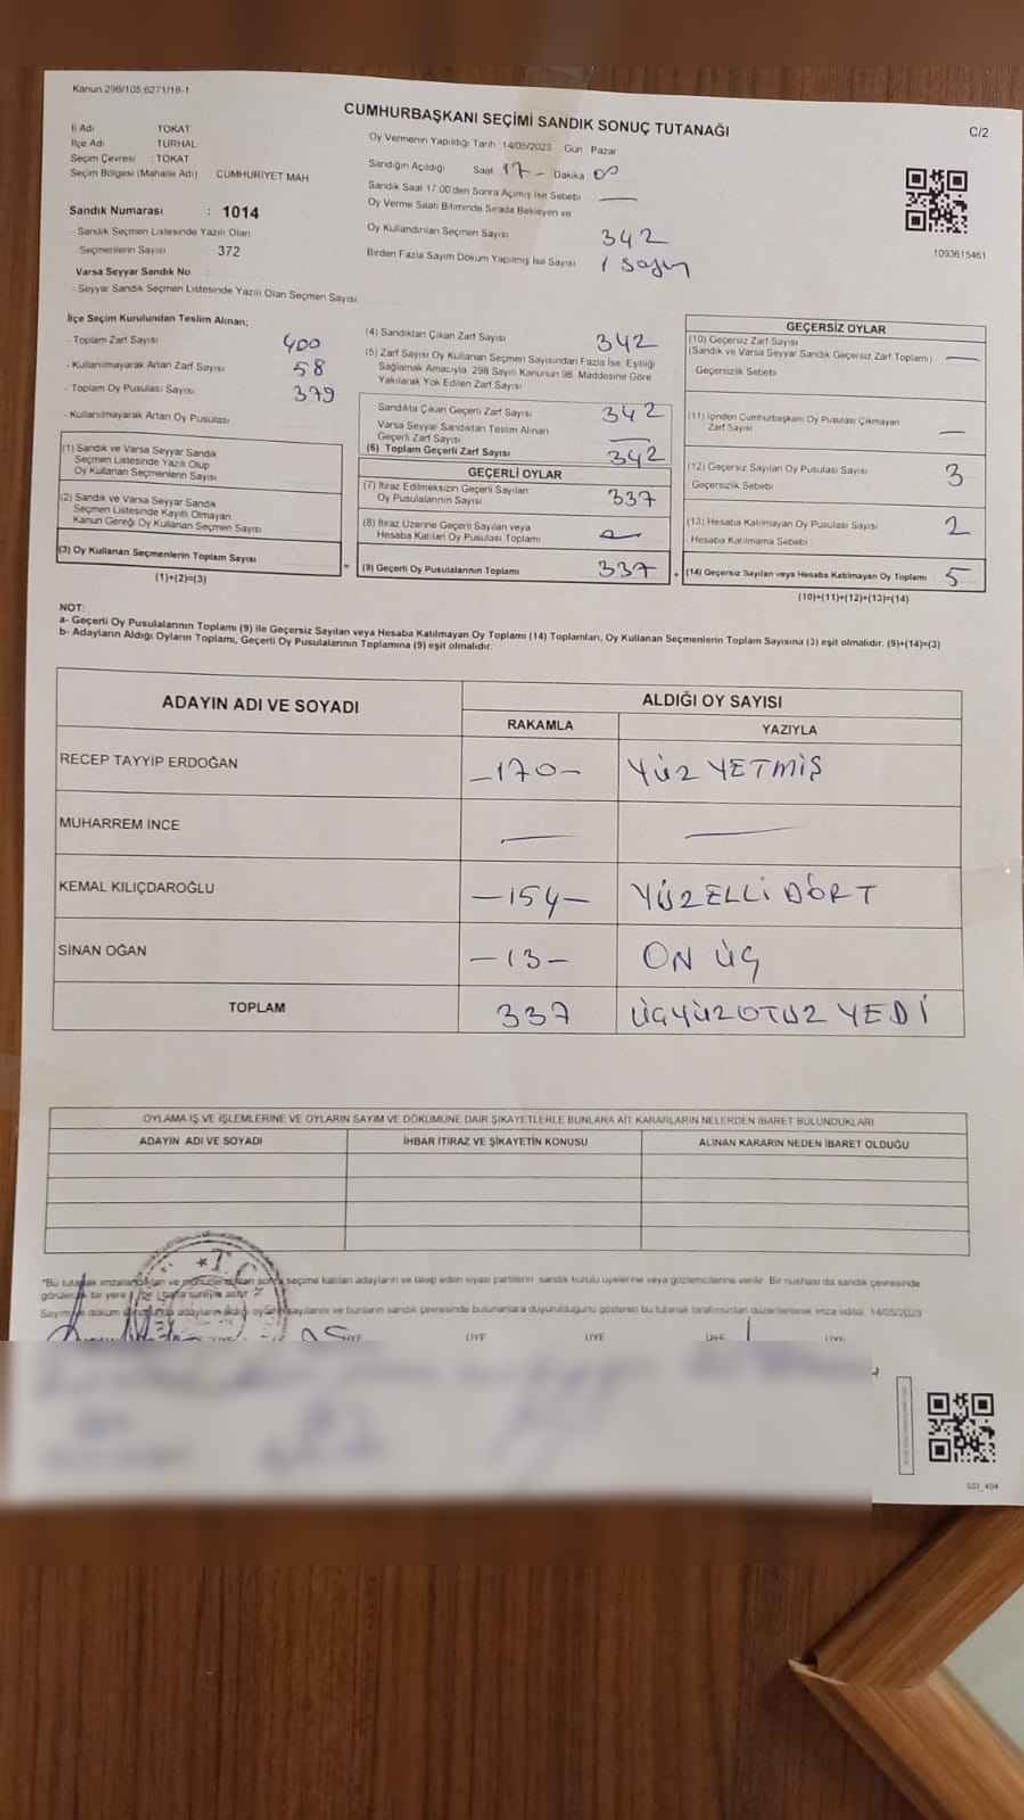 Kanun 298/105 6271/18-1
CUMHURBAŞKANI SEÇİMİ SANDIK SONUÇ TUTANAĞI
C/2
İl Adı TOKAT
İlçe Adı TURHAL
Seçim Çevresi : TOKAT
Seçim Bölgesi (Mahalle Adı) CUMHURİYET MAH
Sandık Numarası : 1014
- Sandık Seçmen Listesinde Yazılı Olan
Seçmenlerin Sayısı 372
Varsa Seyyar Sandık No
- Seyyar Sandık Seçmen Listesinde Yazılı Olan Seçmen Sayısı
Oy Vermenin Yapıldığı Tarih : 14/05/2023 Gün Pazar
Sandığın Açıldığı Saat 17 - Dakika 00
Sandık Saat 17.00'den Sonra Açılmış İse Sebebi —
Oy Verme Saati Bitiminde Sırada Bekleyen ve
Oy Kullandırılan Seçmen Sayısı 342
Birden Fazla Sayım Döküm Yapılmış İse Sayısı 1 sayım
1093615461
İlçe Seçim Kurulundan Teslim Alınan;
- Toplam Zarf Sayısı 400
- Kullanılmayarak Artan Zarf Sayısı 58
- Toplam Oy Pusulası Sayısı 379
- Kullanılmayarak Artan Oy Pusulası
(1) Sandık ve Varsa Seyyar Sandık
Seçmen Listesinde Yazılı Olup
Oy Kullanan Seçmenlerin Sayısı
(2) Sandık ve Varsa Seyyar Sandık
Seçmen Listesinde Kayıtlı Olmayan
Kanun Gereği Oy Kullanan Seçmen Sayısı
(3) Oy Kullanan Seçmenlerin Toplam Sayısı
(1)+(2)=(3)
(4) Sandıktan Çıkan Zarf Sayısı 342
(5) Zarf Sayısı Oy Kullanan Seçmen Sayısından Fazla İse, Eşitliği
Sağlamak Amacıyla, 298 Sayılı Kanunun 98. Maddesine Göre
Yakılarak Yok Edilen Zarf Sayısı
Sandıkta Çıkan Geçerli Zarf Sayısı 342
Varsa Seyyar Sandıktan Teslim Alınan
Geçerli Zarf Sayısı —
(6) Toplam Geçerli Zarf Sayısı 342
GEÇERLİ OYLAR
(7) İtiraz Edilmeksizin Geçerli Sayılan
Oy Pusulalarının Sayısı 337
(8) İtiraz Üzerine Geçerli Sayılan veya
Hesaba Katılan Oy Pusulası Toplamı
(9) Geçerli Oy Pusulalarının Toplamı 337
GEÇERSİZ OYLAR
(10) Geçersiz Zarf Sayısı
(Sandık ve Varsa Seyyar Sandık Geçersiz Zarf Toplamı) —
Geçersizlik Sebebi
(11) İçinden Cumhurbaşkanı Oy Pusulası Çıkmayan
Zarf Sayısı —
(12) Geçersiz Sayılan Oy Pusulası Sayısı 3
Geçersizlik Sebebi
(13) Hesaba Katılmayan Oy Pusulası Sayısı 2
Hesaba Katılmama Sebebi
(14) Geçersiz Sayılan veya Hesaba Katılmayan Oy Toplamı 5
(10)+(11)+(12)+(13)=(14)
NOT:
a- Geçerli Oy Pusulalarının Toplamı (9) ile Geçersiz Sayılan veya Hesaba Katılmayan Oy Toplamı (14) Toplamları, Oy Kullanan Seçmenlerin Toplam Sayısına (3) eşit olmalıdır. (9)+(14)=(3)
b- Adayların Aldığı Oyların Toplamı, Geçerli Oy Pusulalarının Toplamına (9) eşit olmalıdır.
ADAYIN ADI VE SOYADI ALDIĞI OY SAYISI
RAKAMLA YAZIYLA
RECEP TAYYİP ERDOĞAN -170- YÜZ YETMİŞ
MUHARREM İNCE — —
KEMAL KILIÇDAROĞLU -154- YÜZELLİ DÖRT
SİNAN OĞAN -13- ON ÜÇ
TOPLAM 337 ÜÇYÜZOTUZ YEDİ
OYLAMA İŞ VE İŞLEMLERİNE VE OYLARIN SAYIM VE DÖKÜMÜNE DAİR ŞİKAYETLERLE BUNLARA AİT KARARLARIN NELERDEN İBARET BULUNDUKLARI
ADAYIN ADI VE SOYADI İHBAR İTİRAZ VE ŞİKAYETİN KONUSU ALINAN KARARIN NEDEN İBARET OLDUĞU
seçime katılan adayların ve talep eden siyasi partilerin sandık kurulu üyelerine veya gözlemcilerine verilir. Bir nüshası da sandık çevresinde
ve bunların sandık çevresinde bulunanlara duyurulduğunu gösteren bu tutanak tarafımızdan düzenlenerek imza edildi. 14/05/2023
T.C.
ÜYE ÜYE ÜYE ÜYE ÜYE